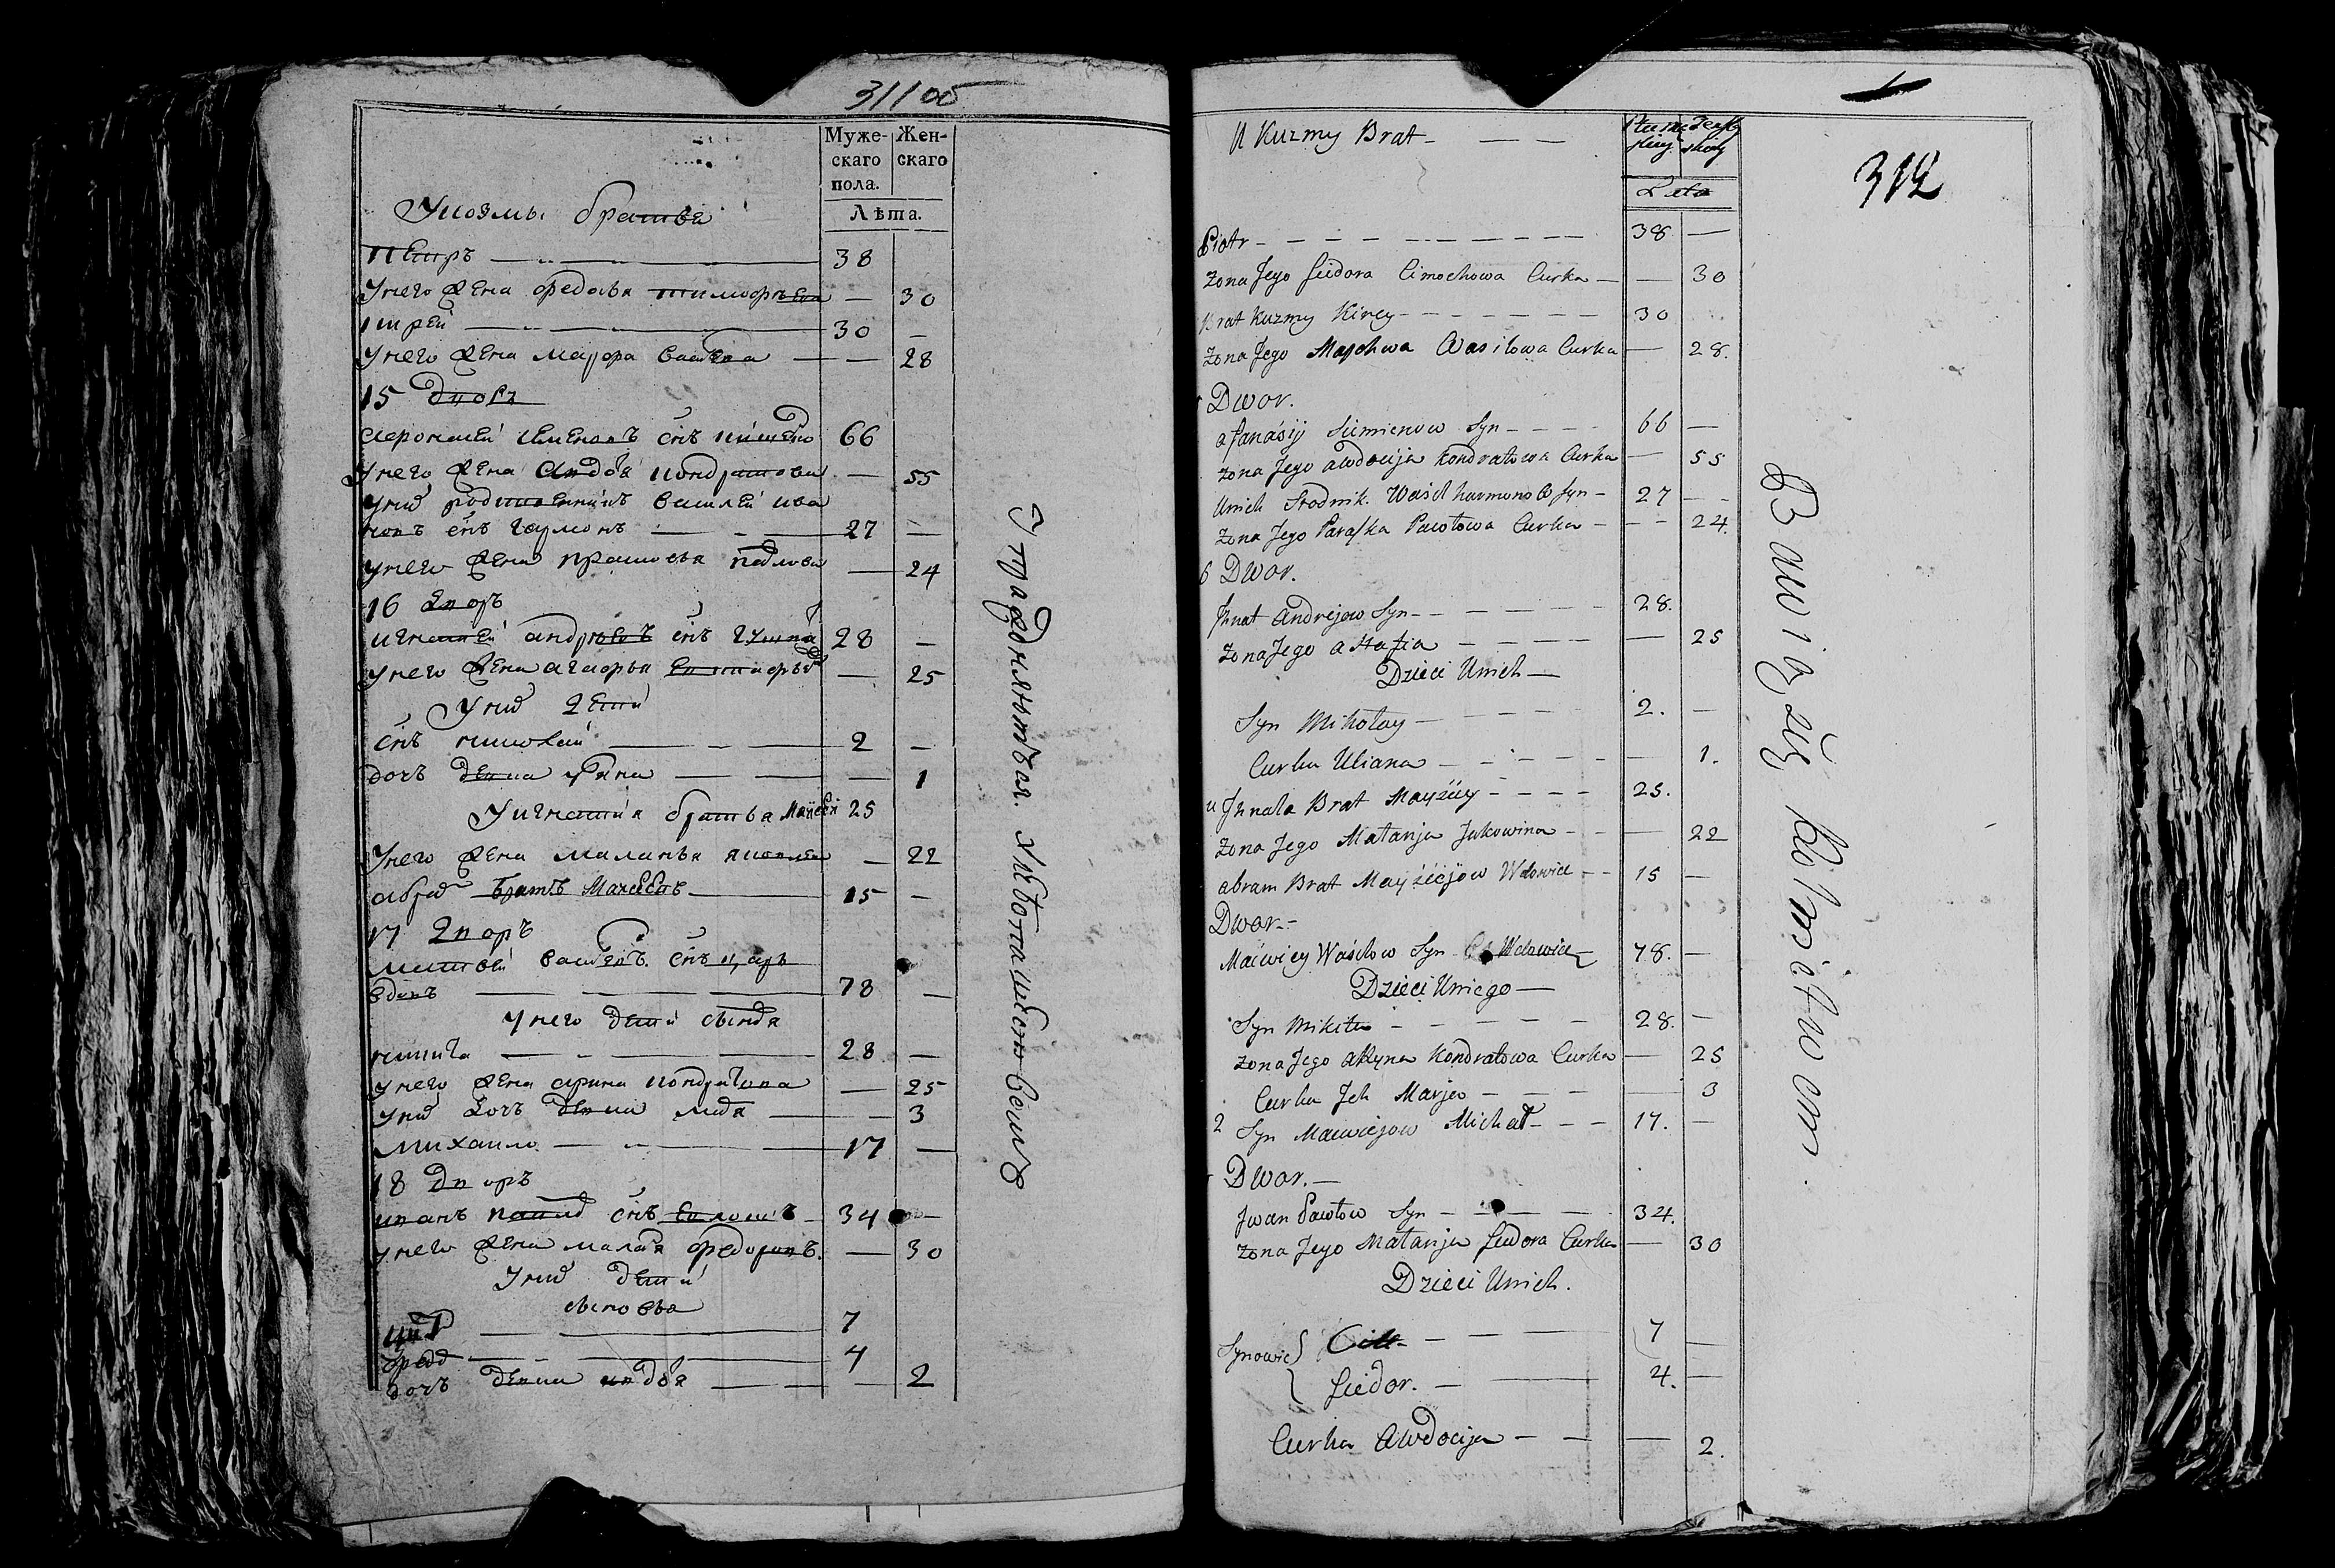 31100
Муже-
скаго
пола.
Жен-
скаго
Лѣта.
Укозмы братья
Петръ 38
Унего жена федосья тимофѣева — 30
30 —
Унего жена марфа васил — 28
15 дворъ
Афонасеи Семеновъ снъ 66
Унего жена Авдотя кондратова — 55
Унихъ родственникъ василеи ива
новъ снъ 27 —
Унего жена прасковья павлова — 24
16 дворъ
Игнатеи андрѣевъ снъ 28 —
Унего жена агафья — 25
Унихъ дети
снъ николаи 2 —
дочь девка уляна — 1
Уигнатия братья Маисеи 25
Унего жена маланья яковлева — 22
абрам братъ Маисеевъ 15 —
17 дворъ
матвеи василевъ снъ
вдовъ 78 —
Унего дети сынъя
никита 28 —
Унего жена арина кондратова — 25
Унихъ дочь девка — 3
михаило 17 —
18 дворъ
Иванъ снъ 34 —
Унего жена малаия федоровъ. — 30
Унихъ дети
сыновья
7
4
дочь девка авдотя — 2
Упражняются. Хлѣбопашествомъ
312
U Kuzmy Brat
Leta
Piotr 38 —
Zona Jego fiedora Cimochowa Curka — 30
Brat Kuzmy Kirey 30
Zona Jego Marchwa Wasilowa Curka — 28.
Dwor.
afanasij Siemienow Syn 66 —
Zona Jego awdocija Kondratowa Curka — 55
Unich Srodnik. Wasil harmonow Syn 27 —
Zona Jego Paraska Pawłowa Curka — 24.
6 Dwor.
Jhnat Andrejow Syn 28.
Zona Jego ahafia — 25
Dzieci Unich
Syn Mikołay 2. —
Curka Uliana — 1.
u Jhnata Brat Mayziey 25.
Zona Jego Małanja Jakowina — 22
abram Brat Mayziejow Wdowiec 15 —
Dwor
Maćwiey Wasilow Syn Wdowiec 78. —
Dzieci Uniego
Syn Mikita 28. —
Zona Jego aryna Kondratowa Curka — 25
Curka Jch Marja — 3
2 Syn Maćwiejow Michał 17. —
Dwor.
Jwan Pawłow Syn 34.
Zona Jego Małanja fiedora Curka — 30
Dzieci Unich.
Synowie 7 —
fiedor. 4. —
Curka Awdocija — 2.
Bawią się Rolnictwem.